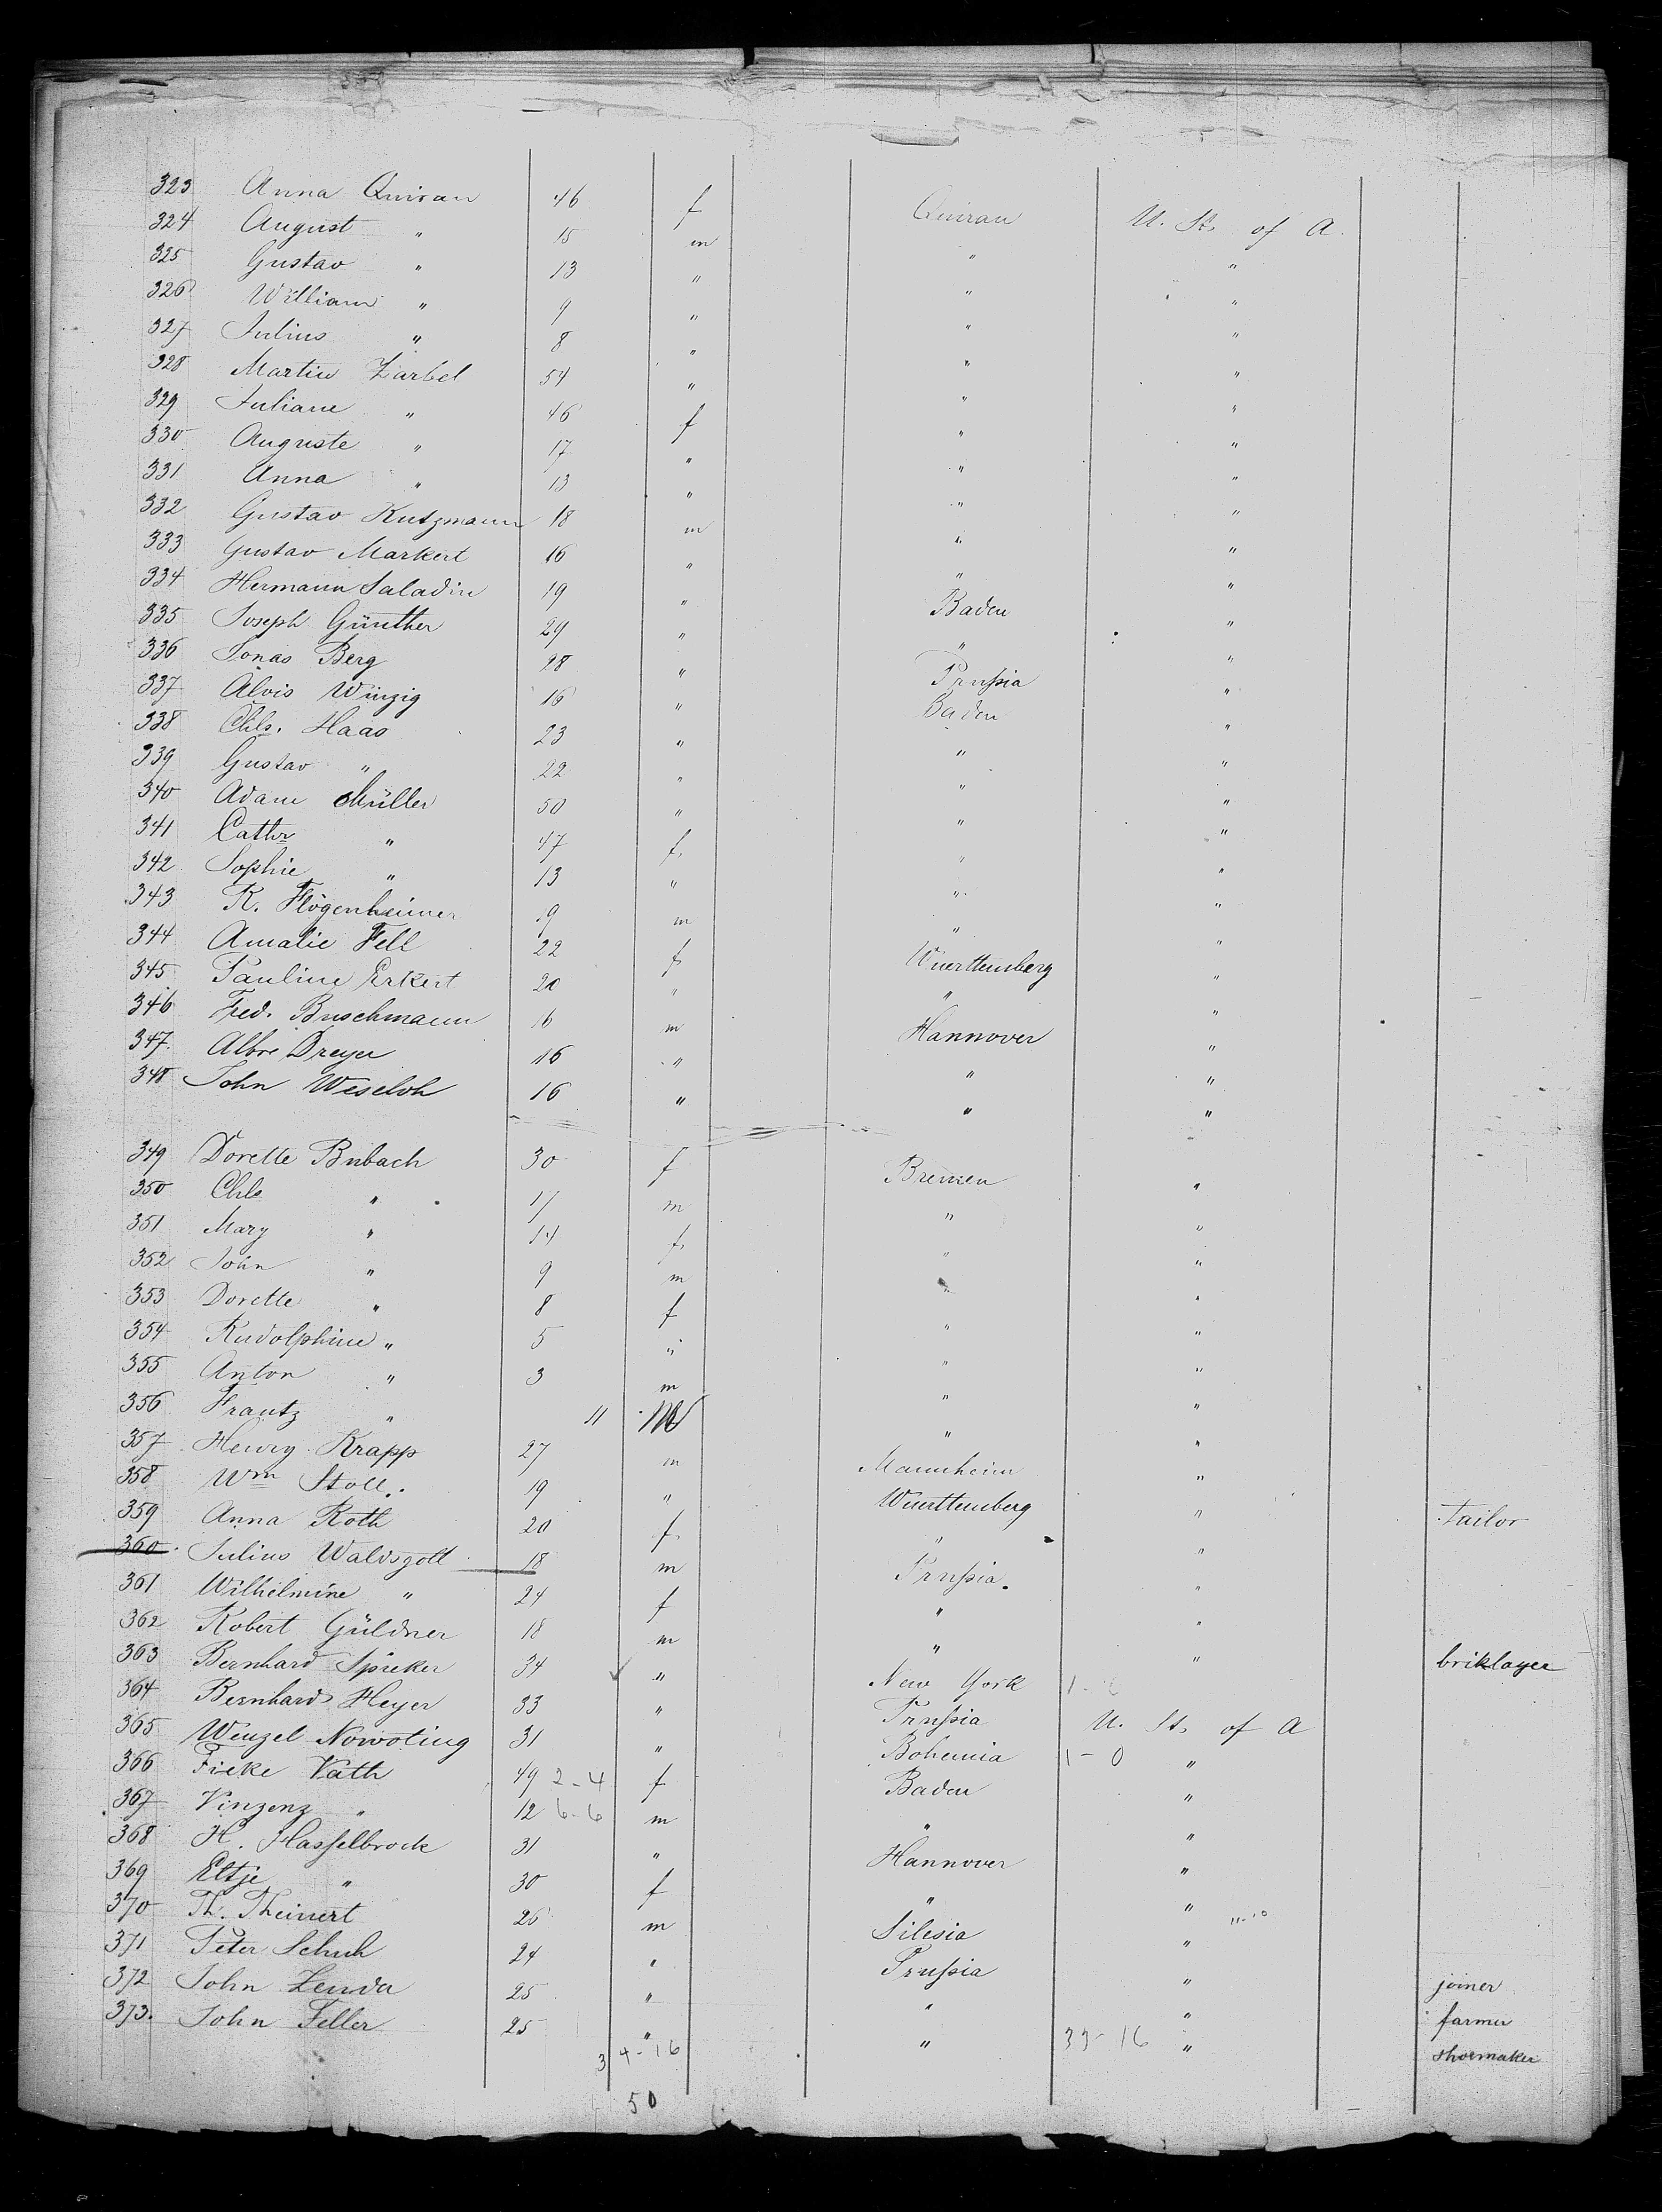 323 Anna Quiran 46 f Quiran U. St. of A
324 August " 15 m " "
325 Gustav " 13 " " "
326 William " 9 " " "
327 Julius " 8 " " "
328 Martin Zarbel 54 " " "
329 Juliane " 46 f " "
330 Auguste " 17 " " "
331 Anna " 13 " " "
332 Gustav Kutzmann 18 m " "
333 Gustav Markert 16 " " "
334 Hermann Saladin 19 " Baden "
335 Joseph Günther 29 " " "
336 Jonas Berg 28 " Prussia "
337 Alvis Winzig 16 " Baden "
338 Chls. Haas 23 " " "
339 Gustav " 22 " " "
340 Adam Müller 50 " " "
341 Cathr " 47 f. " "
342 Sophie " 13 " " "
343 K. Flögenheimer 9 m " "
344 Amalie Fell 22 f Wuerttemberg "
345 Pauline Erkert 20 " " "
346 Fred. Buschmann 16 m Hannover "
347. Albre Dreyer 16 " " "
348 John Weseloh 16 " " "
349 Dorette Bubach 30 f Bremen "
350 Chls " 17 m " "
351 Mary " 14 f " "
352 John " 9 m " "
353 Dorette " 8 f " "
354 Rudolphine " 5 " " "
355 Anton " 3 m " "
356 Frantz " 11 M " "
357 Henry Krapp 27 m Mannheim "
358 Wm Stoll. 19 " Wuerttemberg " Tailor
359 Anna Roth 20 f " "
360 Julius Waldsgott 18 m Prussia. "
361 Wilhelmine " 24 f " "
362 Robert Güldner 18 m " " briklayer
363 Bernhard Spieker 34 " New York
364 Bernhard Heyer 33 " Prussia U. St. of A
365 Wenzel Nowoting 31 " Bohemia 1-0 "
366 Fieke Vath 49 2-4 f Baden "
367 Vinzenz " 12 6-6 m " "
368 H. Hasselbrock 31 " Hannover "
369 Eltje " 30 f " "
370 Th. Theinert 26 m Silesia "
371 Peter Schuh 24 " Prussia " joiner
372 John Zenda 25 " " " farmer
373. John Feller 25 " " 33-16 " shoemaker
34-16
50